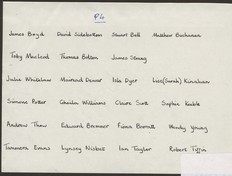 P6
James Boyd David Sidebottom Stuart Bell Matthew Buchanan
Toby Macleod Thomas Bolson James Strang
Julia Whitelaw Mairead Dewar Isla Dyer Lois(Sarah) Kinghan
Simone Potter Ghaila Williams Claire Scott Sophia Kable
Andrew Thaw Edward Bremner Fiona Barratt Hendy Young
Tammara Evans Lynsey Nisbet Ian Taylor Robert Tiffin